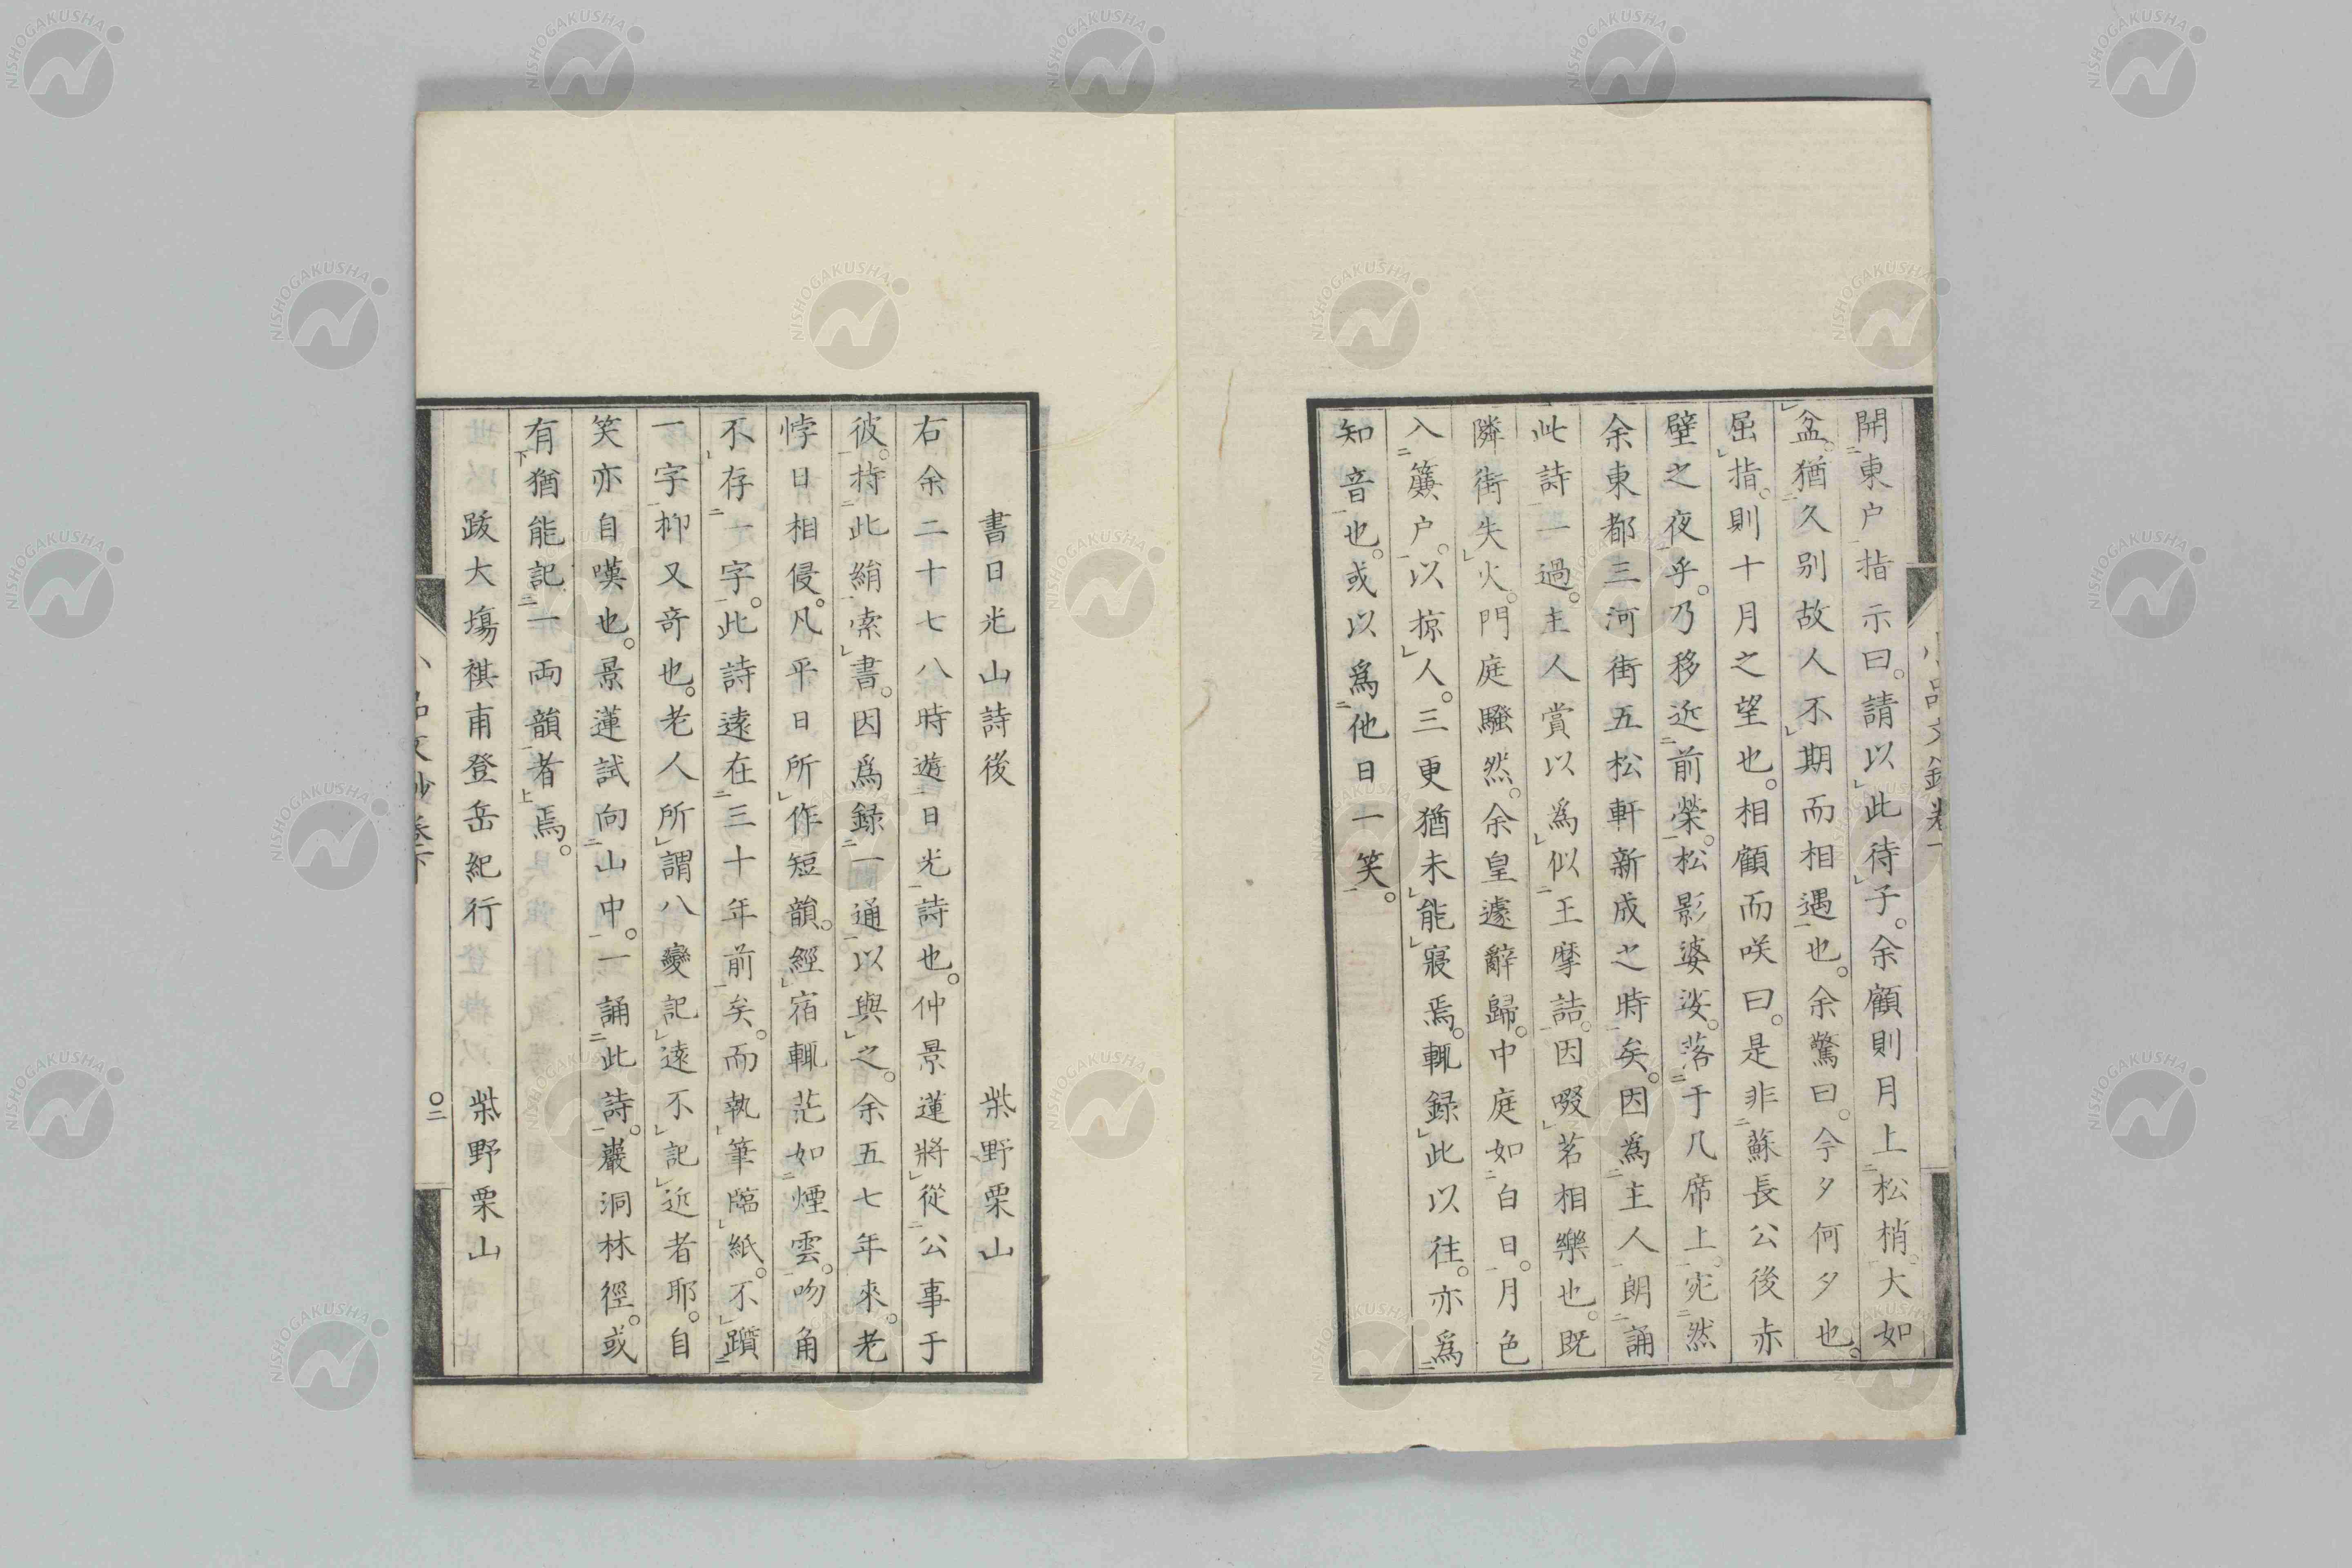 開東户指示曰。請以此待子。余顧則月上松梢。大如
盆。猶久別故人不期而相遇也。余驚曰。今夕何夕也。
屈指。則十月之望也。相顧而咲曰。是非蘇長公後赤
壁之夜乎。乃移近前榮。松影婆娑。落于几席上。宛然
余東都三河街五松軒新成之時矣。因為主人朗誦
此詩一過。主人賞以為似王摩詰。因啜茗相樂也。既
隣街失火。門庭騷然。余皇遽辭歸。中庭如白日。月色
入簾户。以掠人。三更猶未能寢焉。輒録此以往。亦爲
知音也。或以爲他日一笑。
書日光山詩後 柴野栗山
右余二十七八時遊日光詩也。仲景蓮將從公事于
彼。持此絹索書。因爲録一通以與之。余五七年來。老
悖日相侵。凡平日所作短韻。經宿輒茫如煙雲。吻角
不存一字。此詩遠在三十年前矣。而執筆臨紙。不躓
一字。抑又奇也。老人所謂八變記遠不記近者耶。自
笑亦自嘆也。景蓮試向山中。一誦此詩。巖洞林徑。或
有猶能記一両韻者焉。
跋大塲祺甫登岳紀行 柴野栗山
〇二
NISHOGAKUSHA